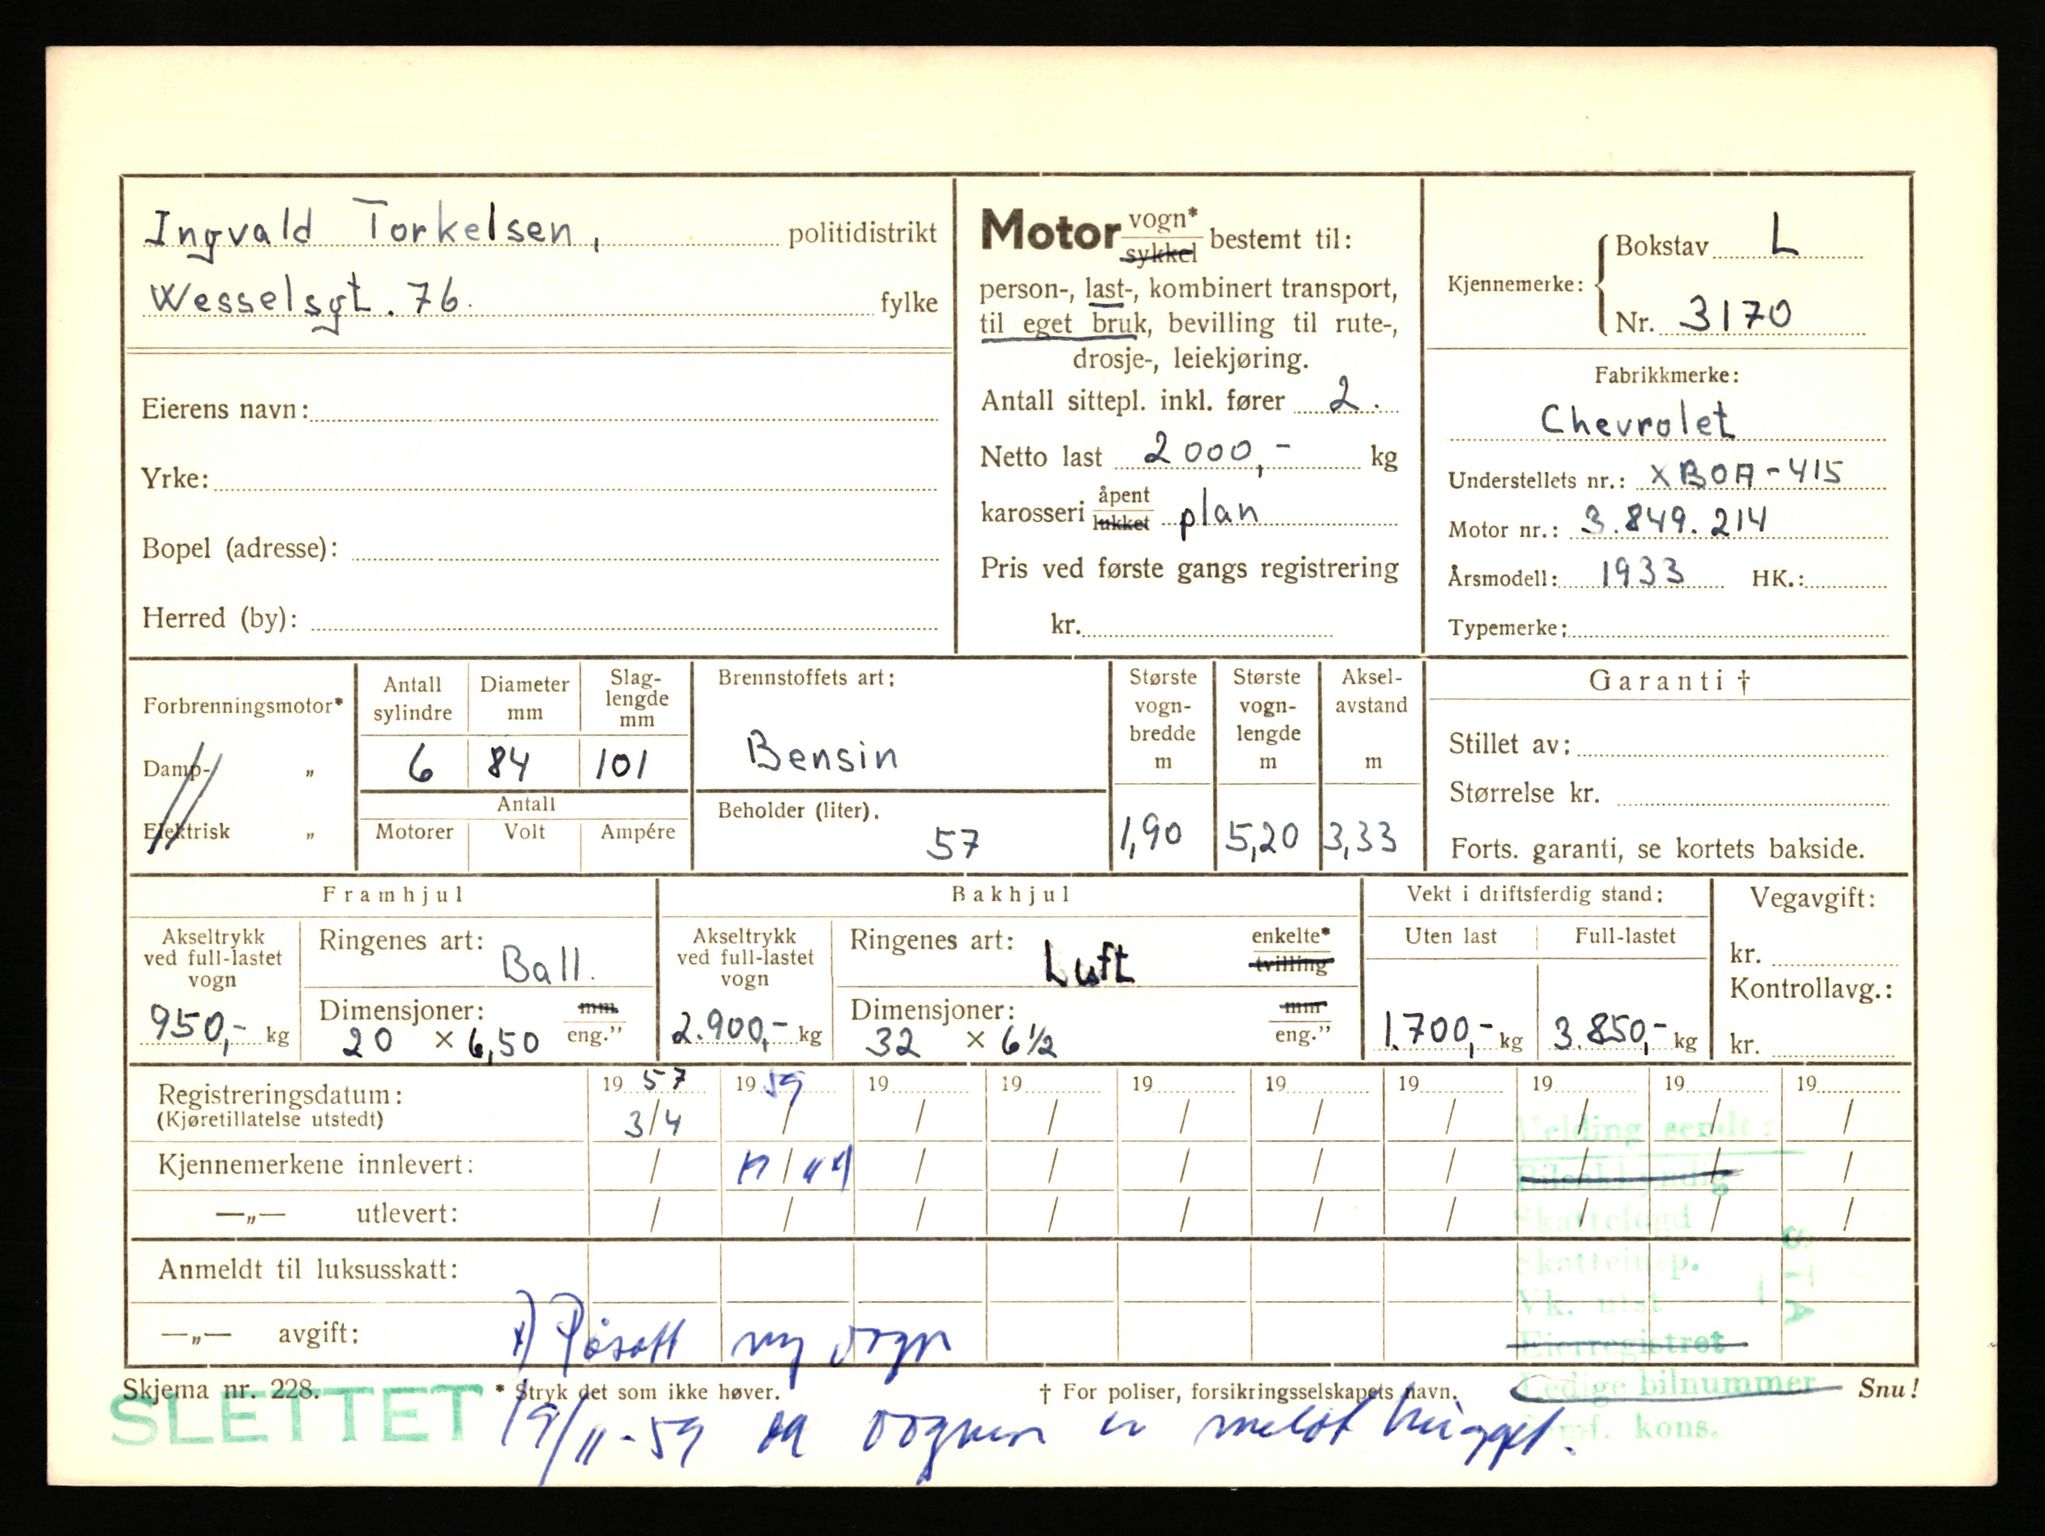 Ingvald Torkelsen, politidistrikt
Wesselsgt. 76. fylke
Eierens navn:
Yrke:
Bopel (adresse):
Herred (by):
Motor vogn* sykkel bestemt til:
person-, last-, kombinert transport,
til eget bruk, bevilling til rute-,
drosje-, leiekjøring.
Antall sittepl. inkl. fører 2.
Netto last 2000,- kg
karosseri åpent lukket plan
Pris ved første gangs registrering
kr.
Kjennemerke: Bokstav L
Nr. 3170
Fabrikkmerke:
Chevrolet
Understellets nr.: XBOA-415
Motor nr.: 3.849.214
Årsmodell: 1933 HK.:
Typemerke:
Forbrenningsmotor*
Damp- „
Elektrisk „
Antall sylindre
6
Diameter mm
84
Slag-lengde mm
101
Antall
Motorer Volt Ampére
Brennstoffets art:
Bensin
Beholder (liter).
57
Største vogn-bredde m
1,90
Største vogn-lengde m
5,20
Aksel-avstand m
3,33
Garanti †
Stillet av:
Størrelse kr.
Forts. garanti, se kortets bakside.
Framhjul
Akseltrykk
ved full-lastet
vogn
950,- kg
Ringenes art: Ball.
Dimensjoner: mm
20 × 6,50 eng."
Bakhjul
Akseltrykk
ved full-lastet
vogn
2.900,- kg
Ringenes art: Luft enkelte* tvilling
Dimensjoner: mm
32 × 6½ eng."
Vekt i driftsferdig stand:
Uten last Full-lastet
1.700,- kg 3.850,- kg
Vegavgift:
kr.
Kontrollavg.:
kr.
Registreringsdatum: 19 57 19 59 19 19 19 19 19 19 19 19
(Kjøretillatelse utstedt) 3/4 / / / / / / / / /
Kjennemerkene innlevert: /
—„— utlevert: / / / / / / / / / /
Anmeldt til luksusskatt:
—„— avgift:
Påsatt ny vogn
Skjema nr. 228. * Stryk det som ikke høver. † For poliser, forsikringsselskapets navn. Snu!
SLETTET
19/11-59 da vognen er meldt hugget.
Melding sendt:
Bilsakkyndig
Skattefogd
Skatteinsp.
Vk. utst
Eierregistret
Ledige bilnummer
kons.